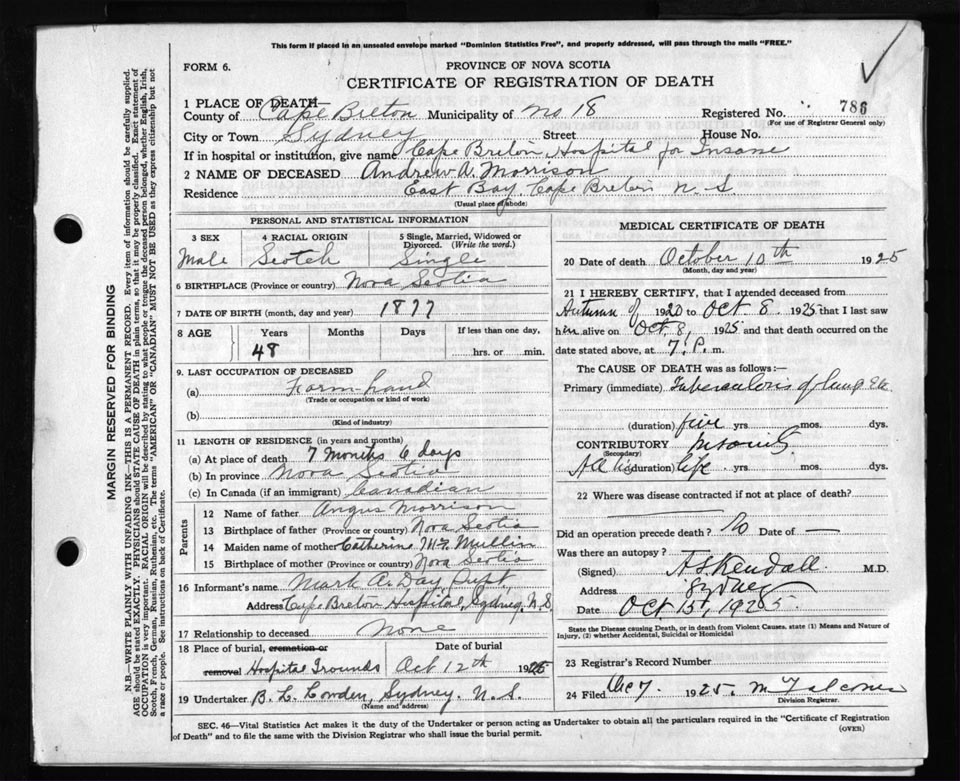 This form if placed in an unsealed envelope marked "Dominion Statistics Free", and properly addressed, will pass through the mails "FREE."
FORM 6.
PROVINCE OF NOVA SCOTIA
CERTIFICATE OF REGISTRATION OF DEATH
1 PLACE OF DEATH—
County of Cape Breton Municipality of No 18 Registered No. 786
(For use of Registrar General only)
City or Town Sydney Street House No.
If in hospital or institution, give name Cape Breton Hospital for Insane
2 NAME OF DECEASED Andrew A. Morrison
Residence East Bay, Cape Breton N.S
(Usual place of abode)
MARGIN RESERVED FOR BINDING
N.B.—WRITE PLAINLY WITH UNFADING INK—THIS IS A PERMANENT RECORD. Every item of information should be carefully supplied.
AGE should be stated EXACTLY. PHYSICIANS should STATE CAUSE OF DEATH in plain terms, so that it may be properly classified. Exact statement of
OCCUPATION is very important. RACIAL ORIGIN will be described by stating to what people or tongue the deceased person belonged, whether English, Irish,
Scotch, French, German, Russian, Ruthenian, etc. The terms "AMERICAN" or "CANADIAN" MUST NOT BE USED as they express citizenship but not
a race or people. See instructions on back of Certificate.
PERSONAL AND STATISTICAL INFORMATION
3 SEX 4 RACIAL ORIGIN 5 Single, Married, Widowed or
Divorced. (Write the word.)
Male Scotch Single
6 BIRTHPLACE (Province or country) Nova Scotia
7 DATE OF BIRTH (month, day and year) 1877
8 AGE Years Months Days If less than one day,
48 hrs. or min.
9. LAST OCCUPATION OF DECEASED
(a) Farm hand
(Trade or occupation or kind of work)
(b)
(Kind of industry)
11 LENGTH OF RESIDENCE (in years and months)
(a) At place of death 7 months 6 days
(b) In province Nova Scotia
(c) In Canada (if an immigrant) Canadian
Parents
12 Name of father Angus Morrison
13 Birthplace of father (Province or country) Nova Scotia
14 Maiden name of mother Catherine McMullin
15 Birthplace of mother (Province or country) Nova Scotia
16 Informant's name Mark A. Day Supt,
Address Cape Breton Hospital, Sydney, N.S.
17 Relationship to deceased None
18 Place of burial, cremation or Date of burial
removal Hospital Grounds Oct 12th 1925
19 Undertaker B. L. Cowden, Sydney. N.S.
(Name and address)
MEDICAL CERTIFICATE OF DEATH
20 Date of death October 10th 1925
(Month, day and year)
21 I HEREBY CERTIFY, that I attended deceased from
Autumn of 1920 to Oct 8 1925 that I last saw
him alive on Oct 8, 1925 and that death occurred on
date stated above, at 7. P. m.
The CAUSE OF DEATH was as follows:—
Primary (immediate) Tuberculosis of lung etc
(duration) five yrs mos. dys.
CONTRIBUTORY Insanity
(Secondary)
All his (duration) life yrs. mos. dys.
22 Where was disease contracted if not at place of death?
Did an operation precede death? No Date of —
Was there an autopsy?
(Signed) A S Kendall M.D.
Address Sydney
Date Oct 15, 1925.
State the Disease causing Death, or in death from Violent Causes, state (1) Means and Nature of
Injury, (2) whether Accidental, Suicidal or Homicidal
23 Registrar's Record Number
24 Filed Dec 7. 1925. M Falconer
Division Registrar.
SEC. 46—Vital Statistics Act makes it the duty of the Undertaker or person acting as Undertaker to obtain all the particulars required in the "Certificate of Registration
of Death" and to file the same with the Division Registrar who shall issue the burial permit.
(OVER)